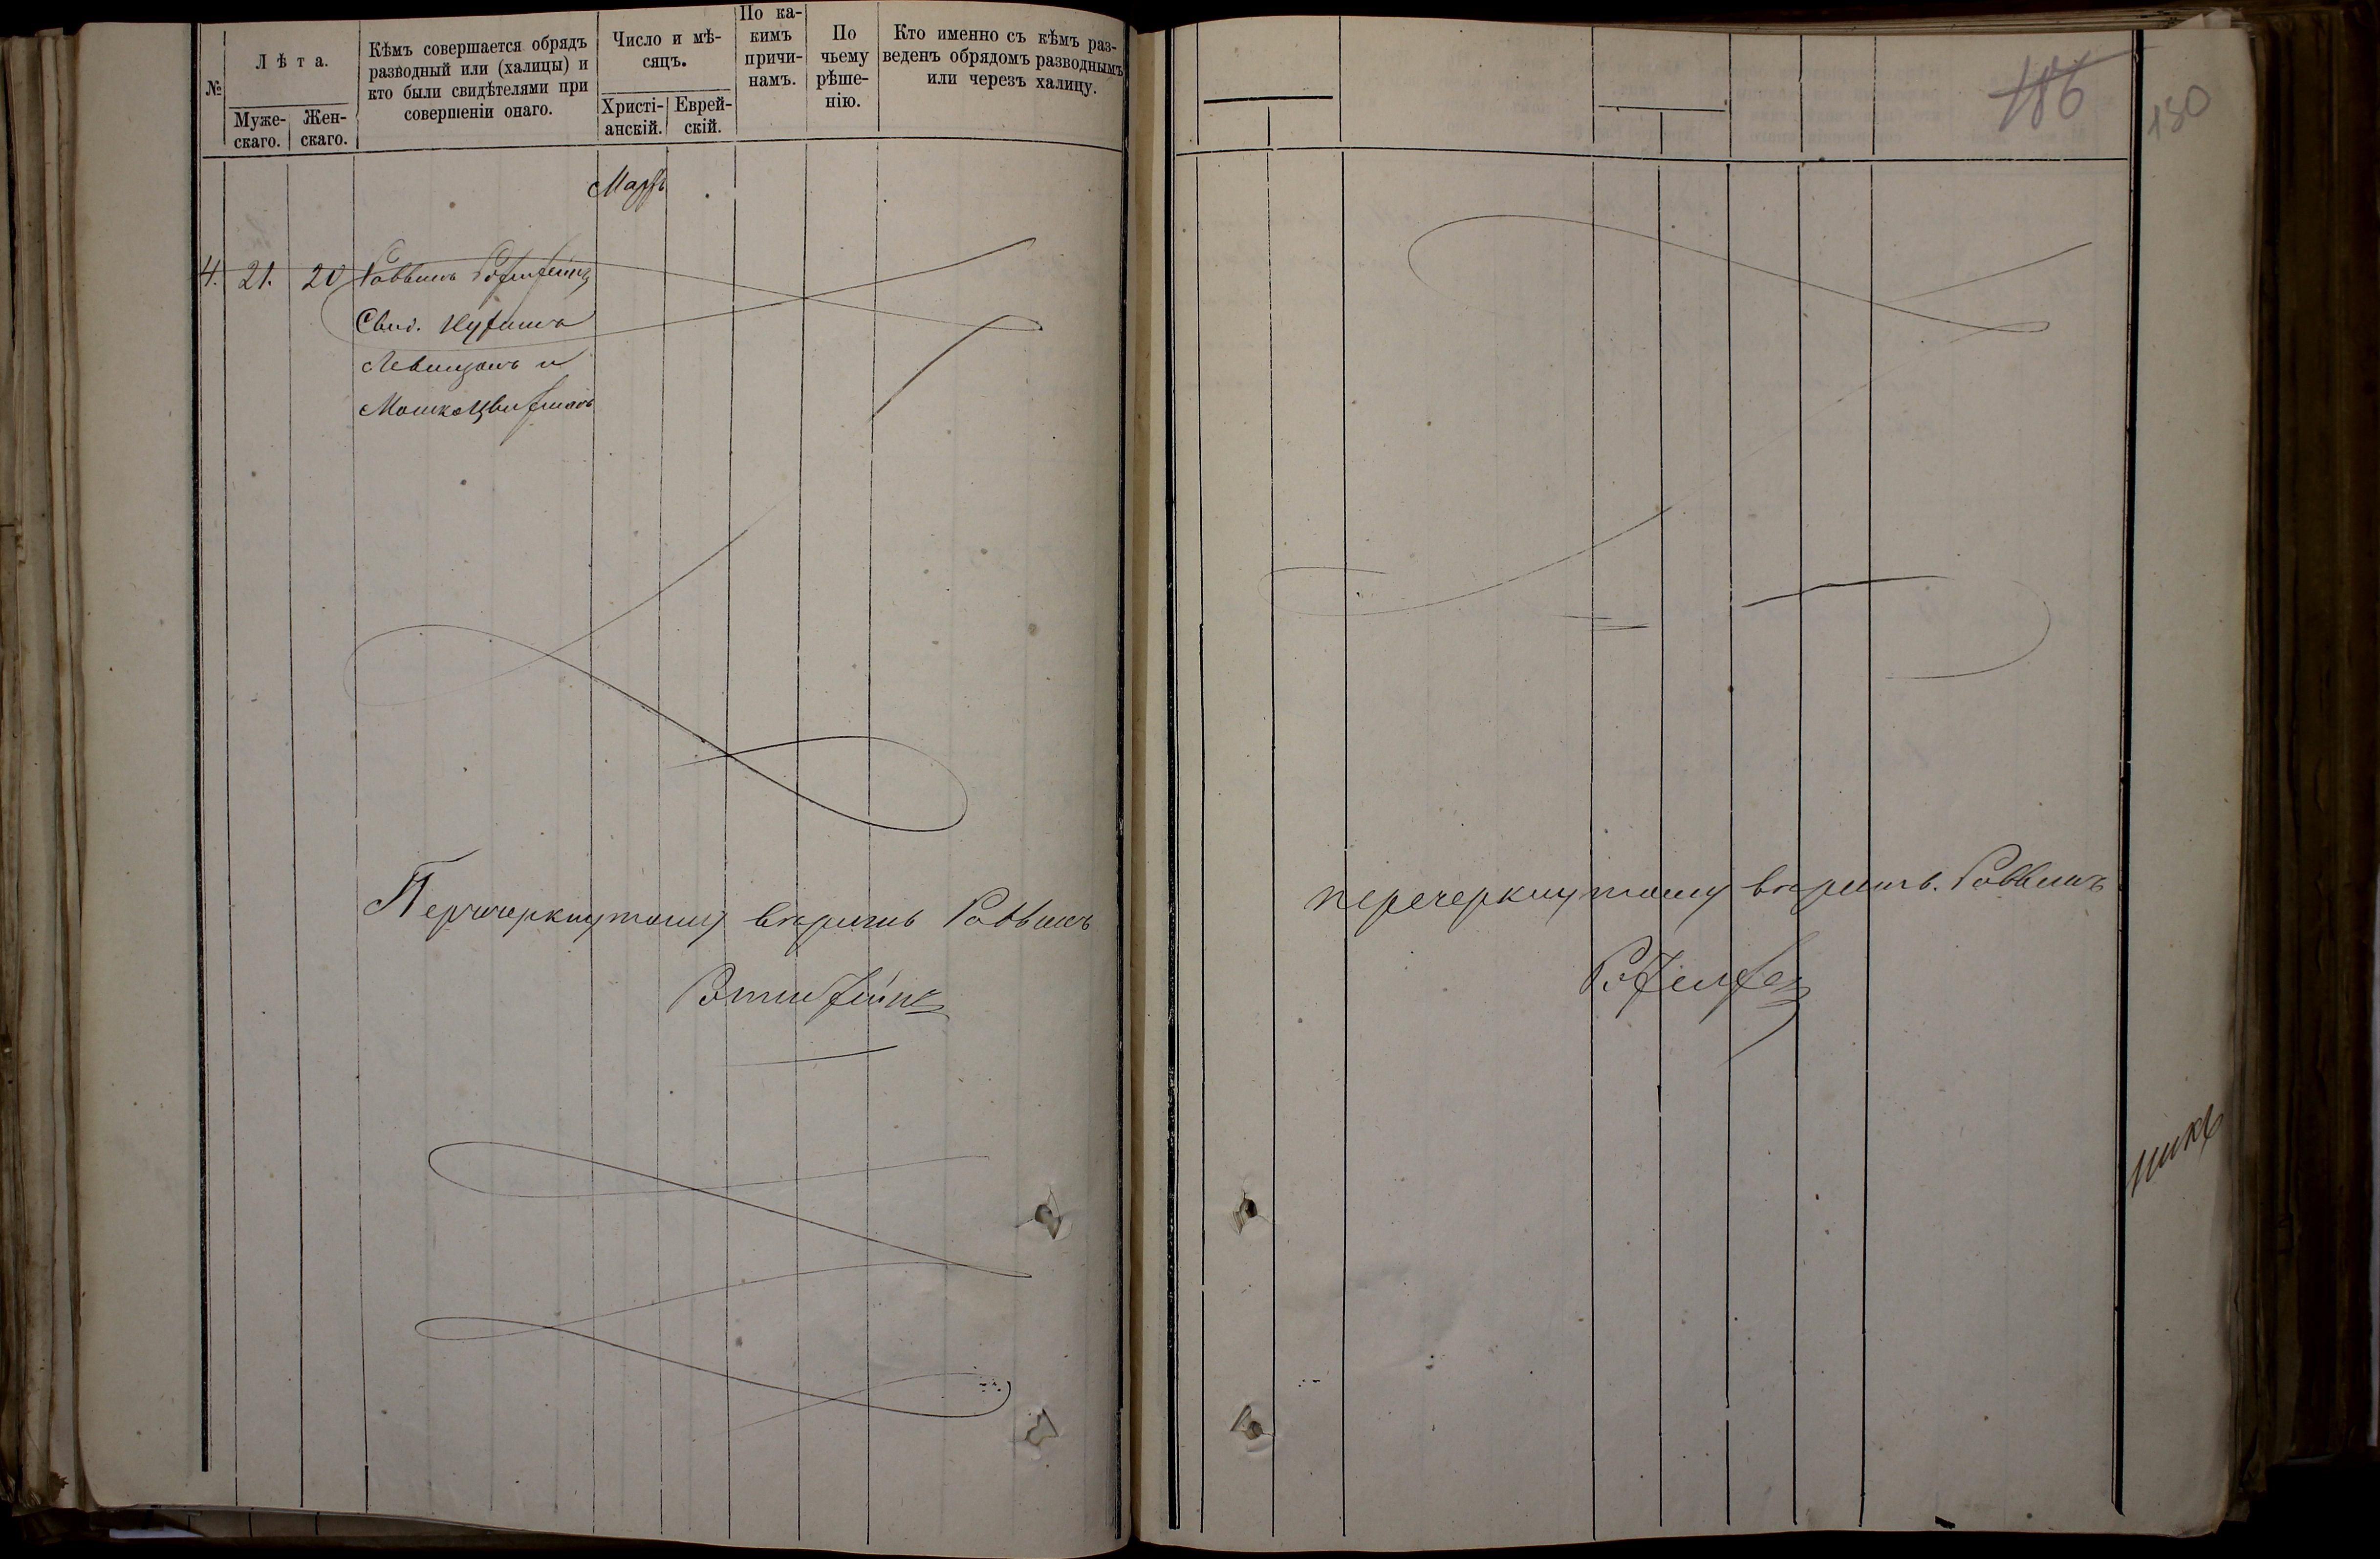 №
Лѣта.
Муже-
скаго.
Жен-
скаго.
Кѣмъ совершается обрядъ
разводный или (халицы) и
кто были свидѣтелями при
совершеніи онаго.
Число и мѣ-
сяцъ.
Христі-
анскій.
Еврей-
скій.
По ка-
кимъ
причи-
намъ.
По
чьему
рѣше-
нію.
Кто именно съ кѣмъ раз-
веденъ обрядомъ разводнымъ
или черезъ халицу.
Мартъ
4. 21. 20 Раввинъ
Свид.
Левинзонъ и
Мошко
Перечеркнутому вѣрить Раввинъ
186
180
перечеркнутому вѣрить. Раввинъ